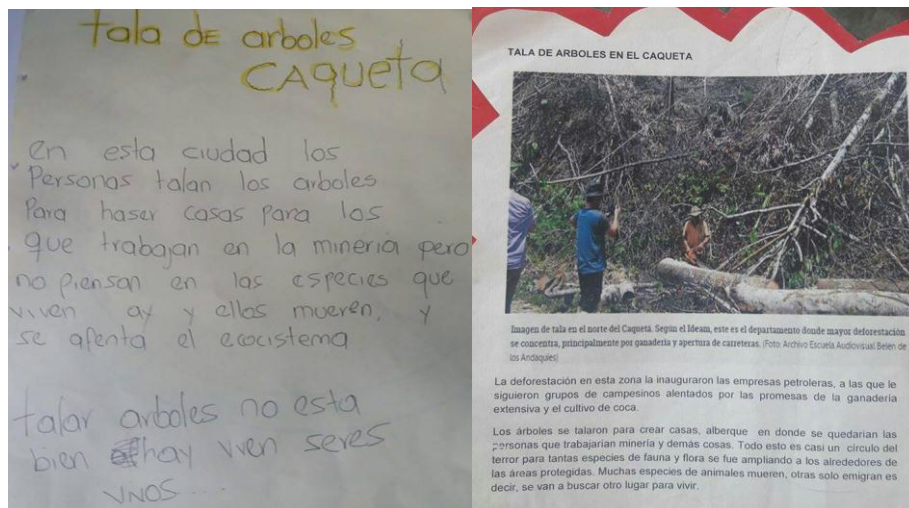 tala dE arboles
CAqueta
en esta ciudad los
Personas talan los arboles
Para haser casas para los
que trabajan en la mineria pero
no piensan en las especies que
viven ay y ellos mueren, y
se afenta el ecocistema
talar arboles no esta
bien hay viven seres
vivos...
TALA DE ARBOLES EN EL CAQUETA
Imagen de tala en el norte del Caquetá. Según el Ideam, este es el departamento donde mayor deforestación
se concentra, principalmente por ganadería y apertura de carreteras. (Foto: Archivo Escuela Audiovisual Belén de
los Andaquíes)
La deforestación en esta zona la inauguraron las empresas petroleras, a las que le
siguieron grupos de campesinos alentados por las promesas de la ganadería
extensiva y el cultivo de coca.
Los árboles se talaron para crear casas, alberque en donde se quedarían las
personas que trabajarían minería y demás cosas. Todo esto es casi un círculo del
terror para tantas especies de fauna y flora se fue ampliando a los alrededores de
las áreas protegidas. Muchas especies de animales mueren, otras solo emigran es
decir, se van a buscar otro lugar para vivir.